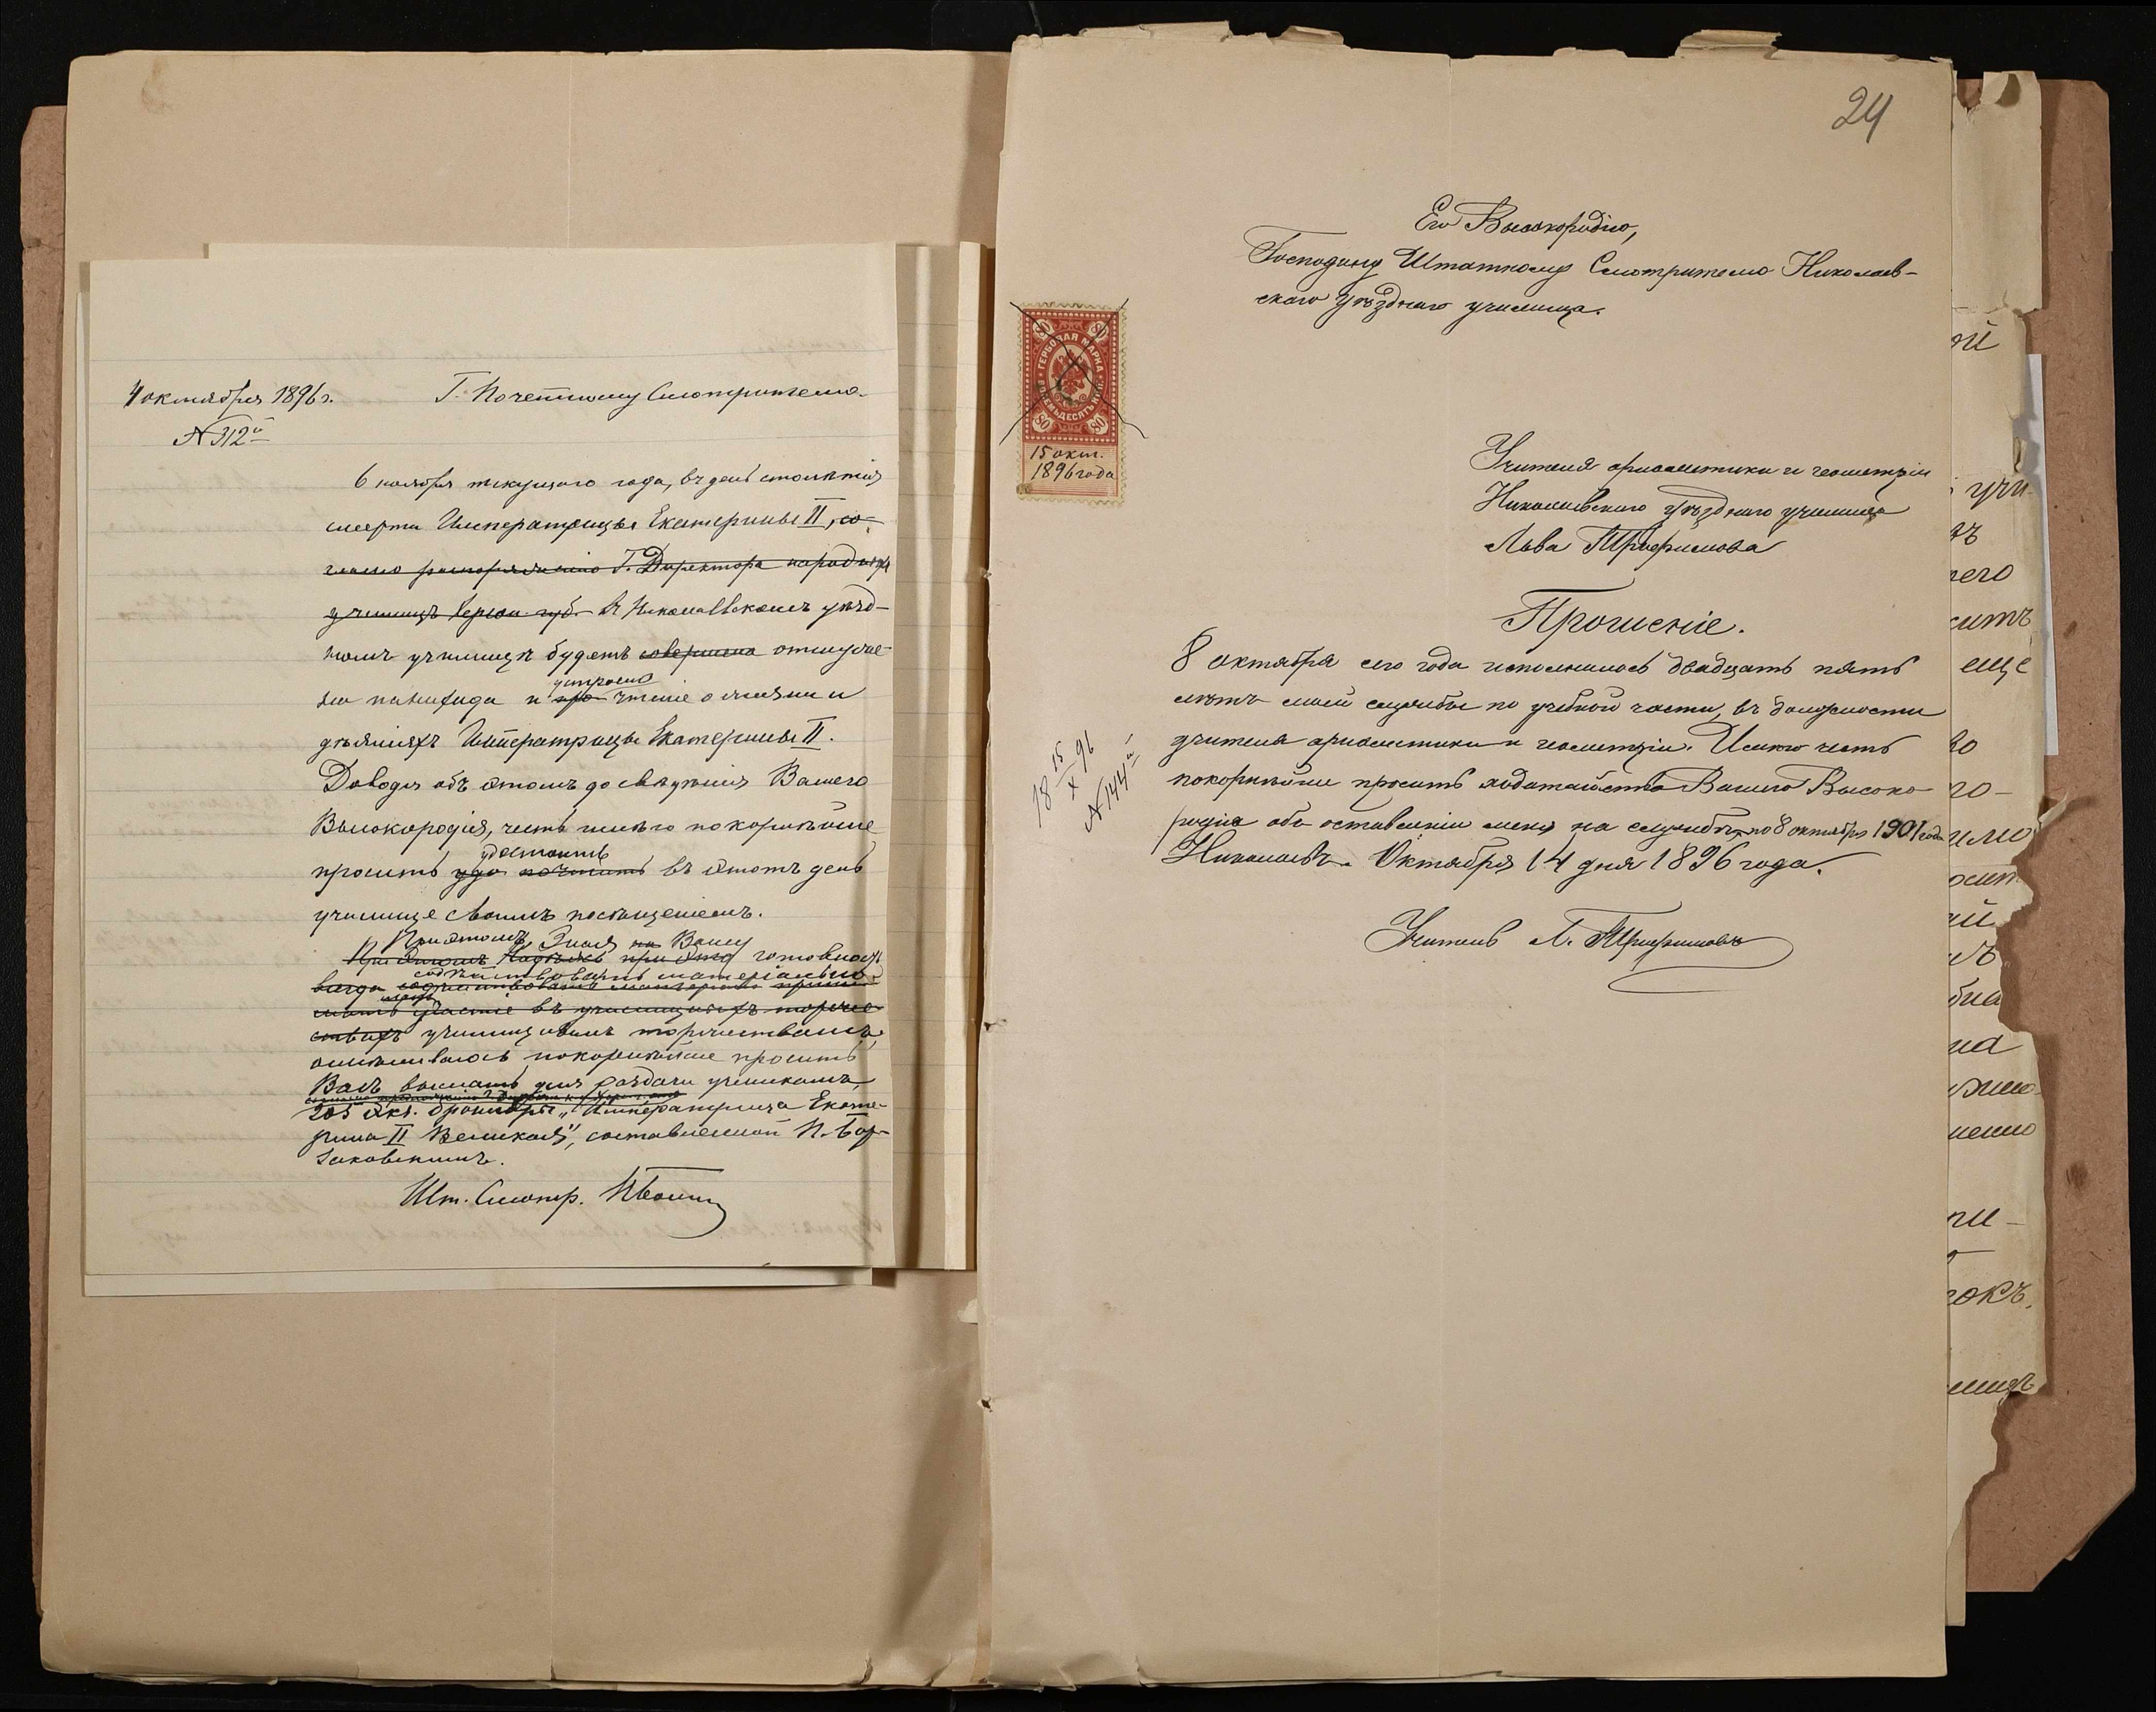 4 октября 1896 г.
№ 312й
Г. Почетному Смотрителю.
6 ноября текущаго года, въ день столѣтія
смерти Императрицы Екатерины II, со-
гласно распоряженію Г. Директора народныхъ
училищъ Херсон. губ. въ Николаевскомъ уѣзд-
номъ училищѣ будетъ совершена отслуже-
на панихида и про устроено чтеніе о жизни и
дѣяніяхъ Императрицы Екатерины II.
Доводя объ этомъ до свѣдѣнія Вашего
Высокородія, честь имѣю покорнѣйше
просить удо почтить удостоить въ этотъ день
училище своимъ посѣщеніемъ.
При этомъ, Зная на Вашу
При этомъ Надѣясь при этом готовность
содѣйствовать матеріально
всегда содѣйствовать матеріально прини-
мать участіе въ училищныхъ торже-
ствахъ училищнымъ торжествамъ,
осмѣливаюсь покорнѣйше просить
Васъ выслать для раздачи ученикамъ
205 экз. брошюры „Императрица Екате-
рина II Великая", составленной П. Бор-
заковскимъ.
Шт. Смотр. ИВанин
24
Его Высокородію,
Господину Штатному Смотрителю Николаев-
скаго уѣзднаго училища.
80 80
ГЕРБОВАЯ МАРКА
ВОСЕМЬДЕСЯТЪ КОП.
80 80
15 окт.
1896 года
Учителя ариѳметики и геометріи
Николаевскаго уѣзднаго училища
Льва Трифимова
Прошеніе.
8 октября сего года исполнилось двадцать пять
лѣтъ моей службы по учебной части, въ должности
учителя ариѳметики и геометріи. Имѣю честь
покорнѣйше просить ходатайства Вашего Высоко-
родія объ оставленіи меня на службѣ по 8 октября 1901 года
Николаевъ. Октября 14 дня 1896 года.
Учитель Л. Трифимовъ
18 15/X 96
№ 144й
ій
учи-
въ
чего
ситъ
еще
го-
ій
на
окъ.